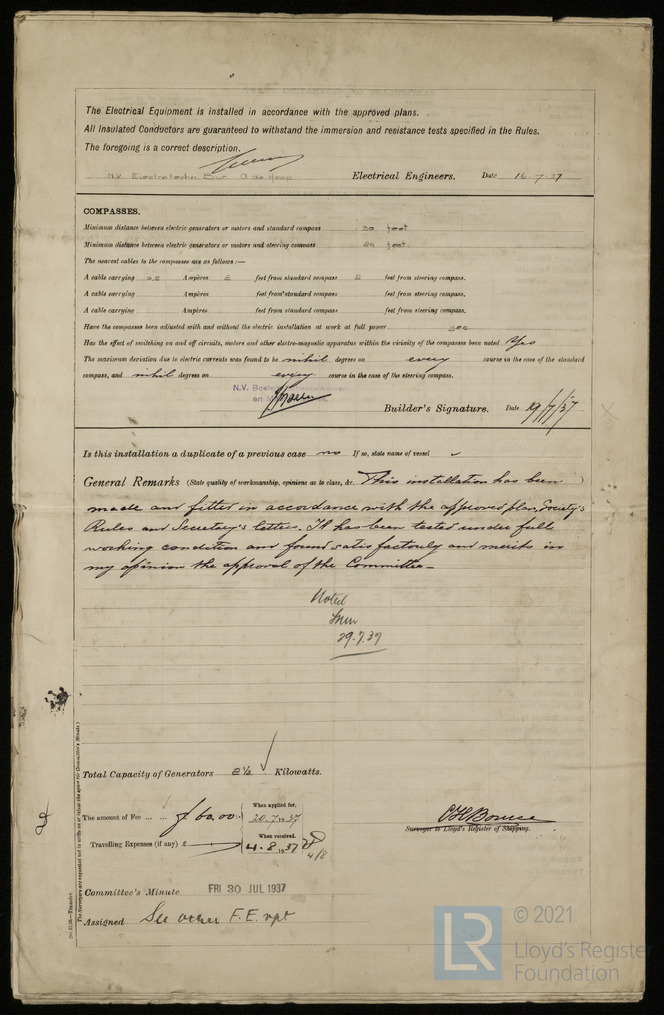 The Electrical Equipment is installed in accordance with the approved plans.
All Insulated Conductors are guaranteed to withstand the immersion and resistance tests specified in the Rules.
The foregoing is a correct description,
N.V. Electrotechn. Bur. Electrical Engineers. Date 16-7-37
COMPASSES.
Minimum distance between electric generators or motors and standard compass 30 feet
Minimum distance between electric generators or motors and steering compass 24 feet.
The nearest cables to the compasses are as follows:—
A cable carrying Ampères 2 feet from standard compass 2 feet from steering compass.
A cable carrying Ampères feet from standard compass feet from steering compass.
A cable carrying Ampères feet from standard compass feet from steering compass.
Have the compasses been adjusted with and without the electric installation at work at full power yes
Has the effect of switching on and off circuits, motors and other electro-magnetic apparatus within the vicinity of the compasses been noted yes
The maximum deviation due to electric currents was found to be nihil degrees on every course in the case of the standard
compass, and nihil degrees on every course in the case of the steering compass.
N.V.
en
Builder's Signature. Date 19/7/37
Is this installation a duplicate of a previous case no If so, state name of vessel
General Remarks (State quality of workmanship, opinions as to class, &c. This installation has been )
made and fitted in accordance with the approved plan, Society's
Rules and Secretary's letters. It has been tested under full
working condition and found satisfactorily and merits in
my opinion the approval of the Committee—
Noted
29.7.37
Total Capacity of Generators 2½ Kilowatts.
The amount of Fee ... ... f 60.00: When applied for, 20.7.1937
Travelling Expenses (if any) £ When received. 4.8.1937
4/8
Surveyor to Lloyd's Register of Shipping.
Committee's Minute FRI 30 JUL 1937
Assigned See other F.E. rpt
(The Surveyors are requested not to write on or below the space for Committee's Minute.)
Transfer.
LR
© 2021
Lloyd's Register
Foundation